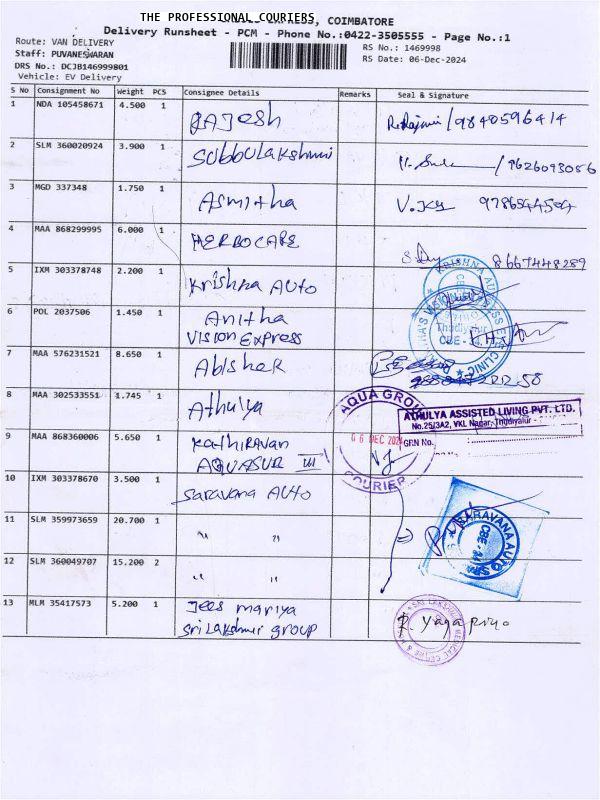 THE PROFESSIONAL COURIERS, COIMBATORE
Delivery Runsheet - PCM - Phone No.:0422-3505555 - Page No.:1
Route: VAN DELIVERY
RS No.: 1469998
Staff: PUVANESWARAN
RS Date: 06-Dec-2024
DRS No.: DCJB146999801
Vehicle: EV Delivery
S No Consignment No Weight PCS Consignee Details Remarks Seal & Signature
1 NDA 105458671 4.500 1 RAJESh 9840596414
2 SLM 360020924 3.900 1 SubbuLakshmi 9626093056
3 MGD 337348 1.750 1 Asmitha V.
4 MAA 868299995 6.000 1 HERBOCARE 8667448289
5 IXM 303378748 2.200 1 Krishna Auto
6 POL 2037506 1.450 1 Anitha
Vision Express
7 MAA 576231521 8.650 1 Abishek
8 MAA 302533551 1.745 1 Athulya
ATHULYA ASSISTED LIVING PVT. LTD.
No.25/3A2, VKL Nagar, Thudiyalur
GRN No.
AQUA GROUP
06 DEC 2024
COURIER
9 MAA 868360006 5.650 1 Kathiravan
AQUASUB III
10 IXM 303378670 3.500 1 Saravana Auto
SARAVANA AUTO
CBE - 34
11 SLM 359973659 20.700 1 " "
12 SLM 360049707 15.200 2 " "
13 MLM 35417573 5.200 1 Jees mariya
Sri Lakshmi group
KRISHNA AUTO
Thudiyalur
CBE - 34.